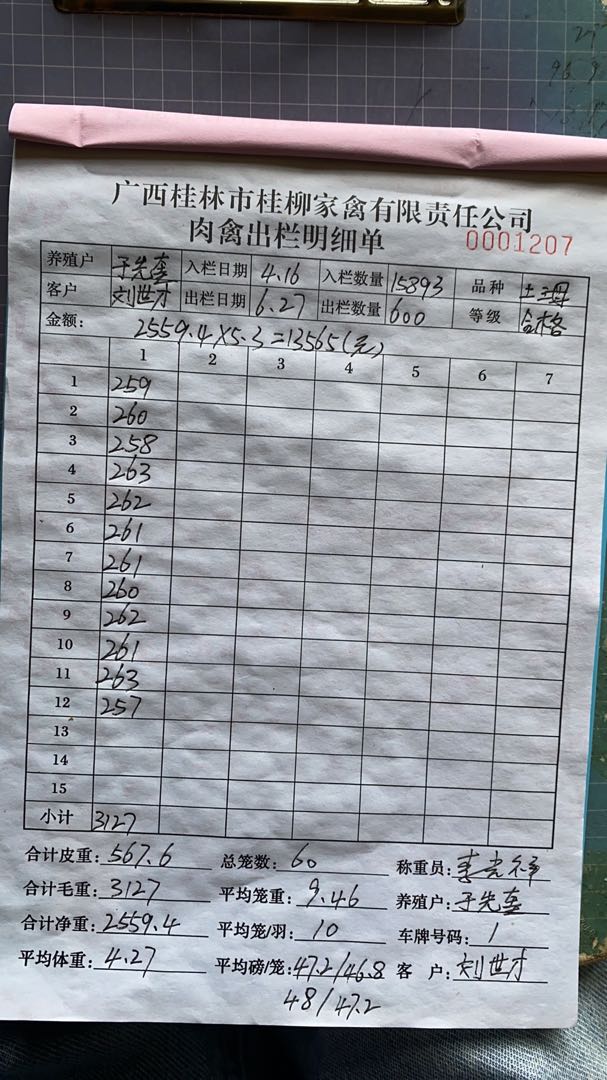 广西桂林市桂柳家禽有限责任公司
肉禽出栏明细单 0001207
养殖户 于先奎 入栏日期 4.16 入栏数量 15893 品种 土三母
客户 刘世才 出栏日期 6.27 出栏数量 600 等级 合格
金额: 2559.4×5.3=13565(元)
1 2 3 4 5 6 7
1 259
2 260
3 258
4 263
5 262
6 261
7 261
8 260
9 262
10 261
11 263
12 257
13
14
15
小计 3127
合计皮重: 567.6 总笼数: 60 称重员:
合计毛重: 3127 平均笼重: 9.46 养殖户: 于先奎
合计净重: 2559.4 平均笼/羽: 10 车牌号码: 1
平均体重: 4.27 平均磅/笼: 47.2/46.8 客 户: 刘世才
48/47.2